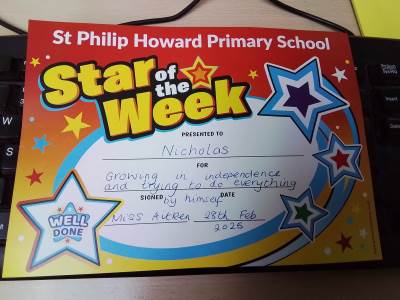 St Philip Howard Primary School
Star of the Week
PRESENTED TO
Nicholas
FOR
Growing in independence
and trying to do everything
by himself
SIGNED DATE
Miss 28th Feb
2025
WELL DONE